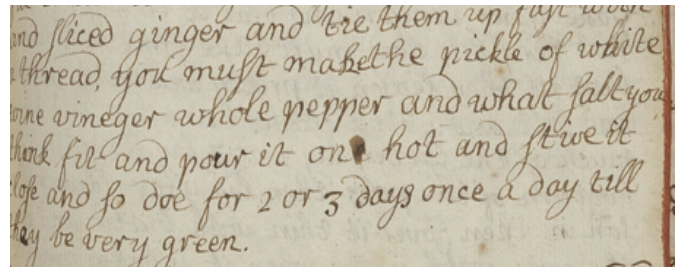 and sliced ginger and tie them up fast with
thread, you must make the pickle of white
wine vineger whole pepper and what salt you
think fit and pour it on hot and stive it
close and so doe for 2 or 3 days once a day till
they be very green.